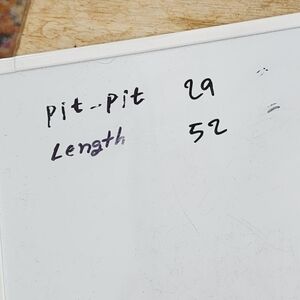 pit--pit 29
Length 52